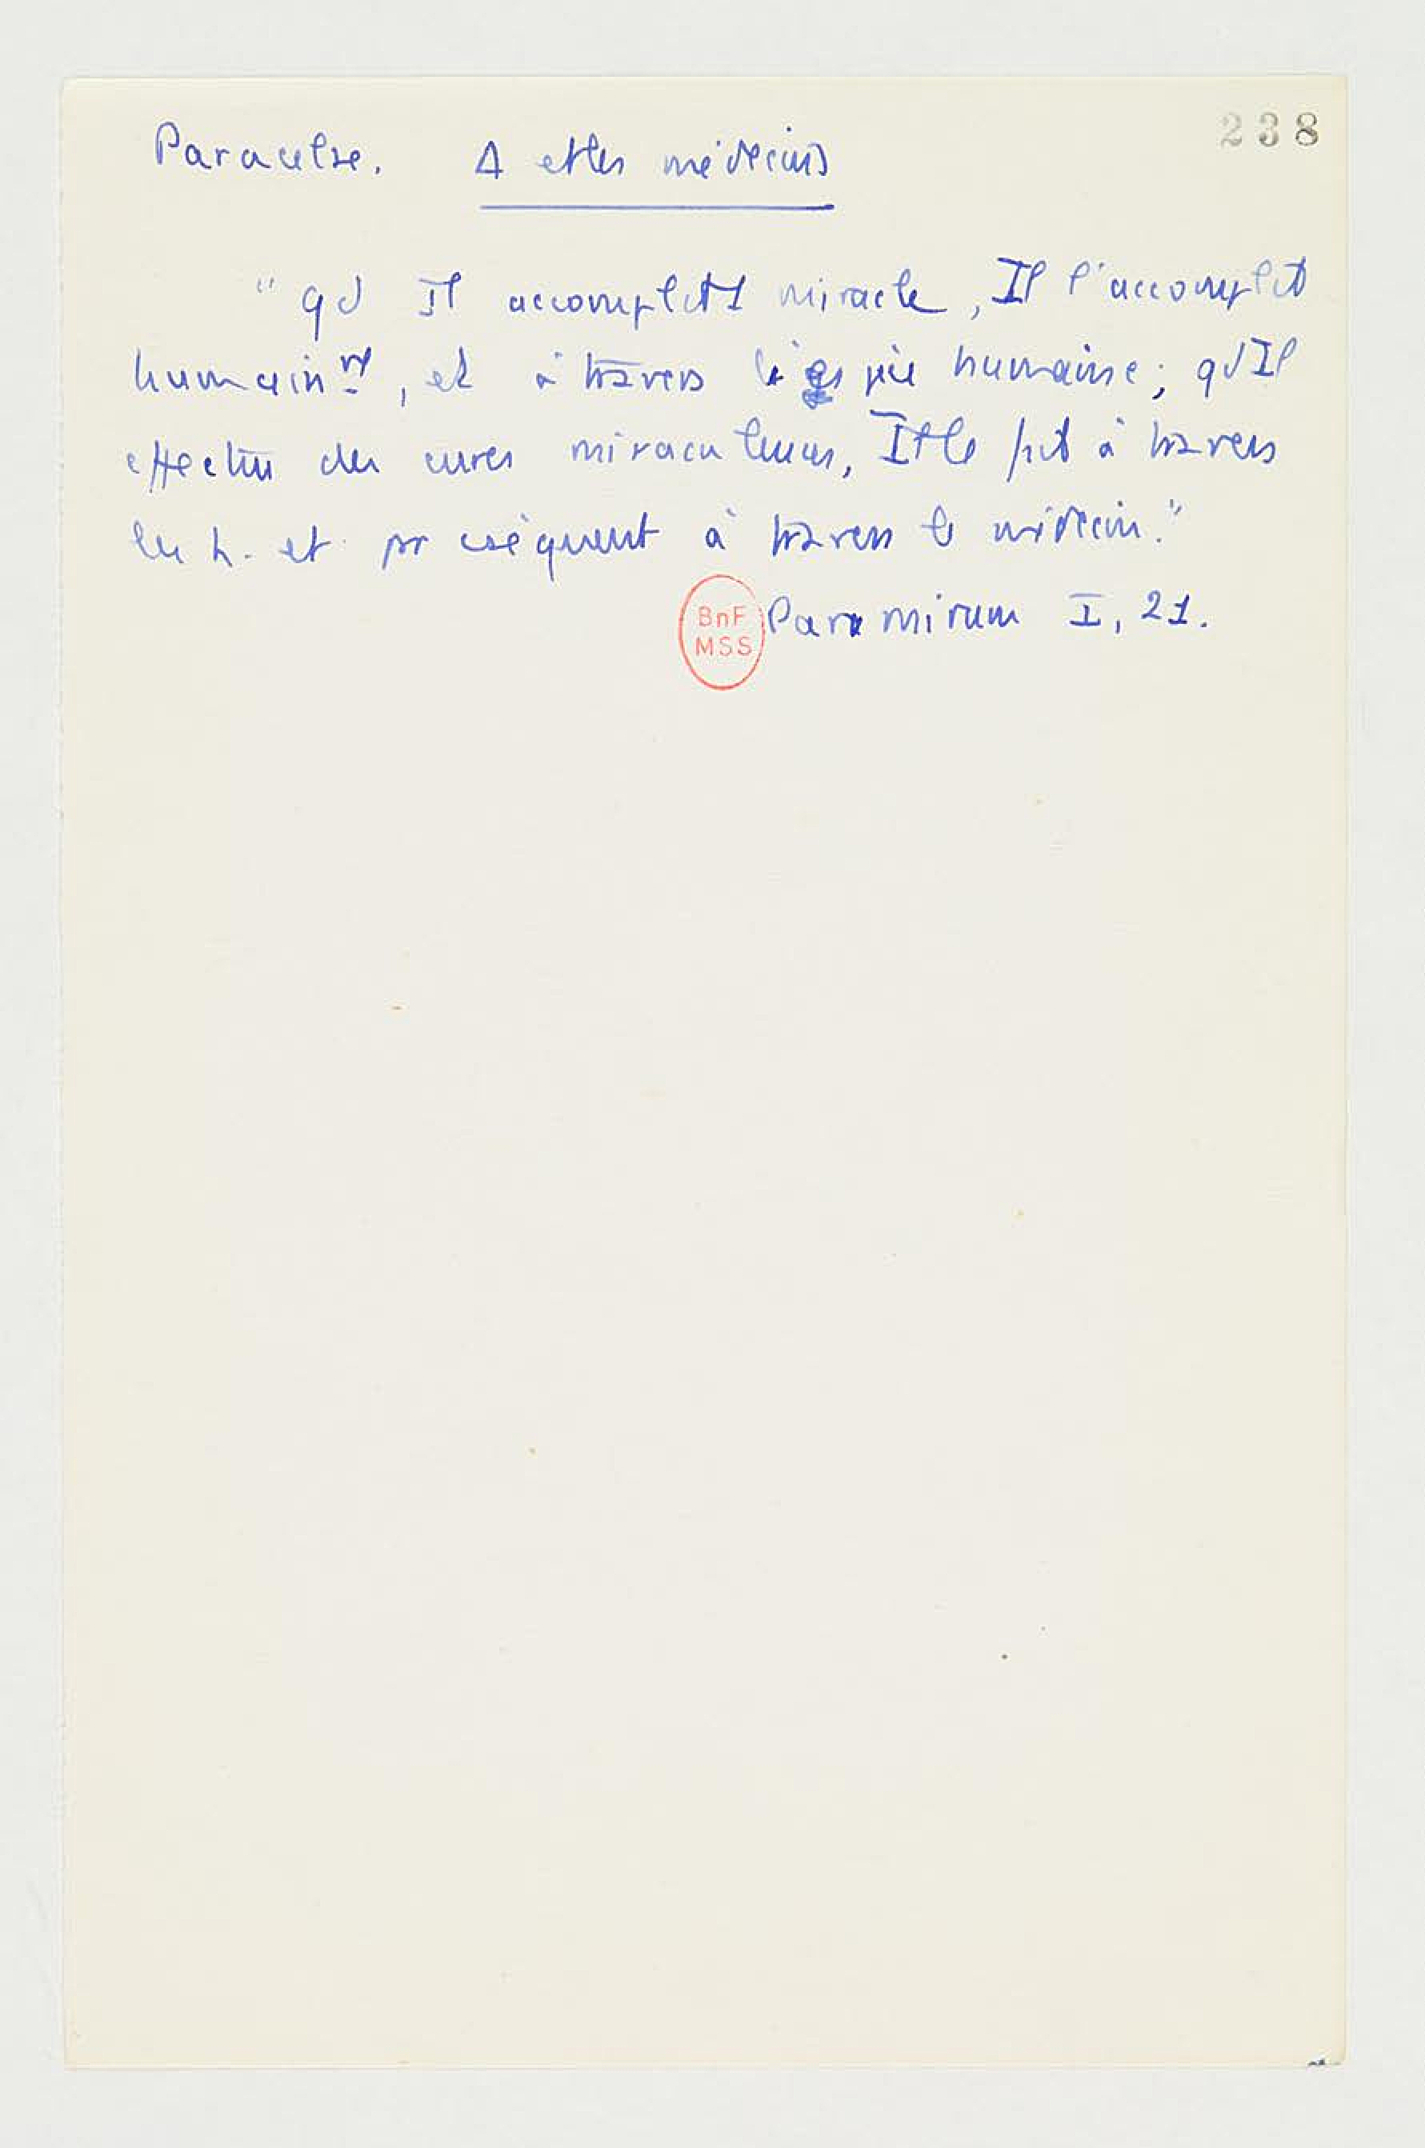 238
Paracelse. Δ et les médecins
"qd Il accomplit 1 miracle, Il l'accomplit
humainmt, et à travers l'espèce humaine; qd Il
effectue des cures miraculeuses, Il le fait à travers
les h. et pr cséquent à travers le médecin."
Paramirum I, 21.
BnF
MSS